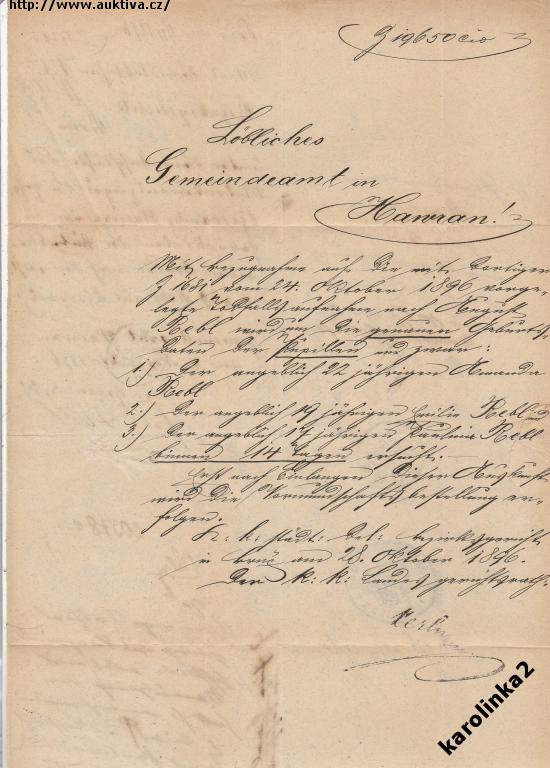 http://www.auktiva.cz/
Z 19650 civ
Löbliches
Gemeindeamt in
Hawran!
Mit Bezugnahme auf die mit dortigen
Z 1681 vom 24. Oktober 1896 vorge-
legte Todfallsaufnahme nach August
Rebl wird um die genauen Geburts-
daten der Pupillen und zwar:
1.) Der angeblich 22 jährigen Amanda
Rebl
2.) Der angeblich 19 jährigen Emilie Rebl und
3.) Der angeblich 17 jährigen Paulina Rebl
binnen 14 Tagen ersucht.
Erst nach Einlangen dieser Auskunft
wird die Vormundschaftsbestellung er-
folgen.
K. k. städt: del: Bezirksgericht
in Brüx am 28. Oktober 1896.
Der k: k: Landesgerichtsrath:
karolinka2